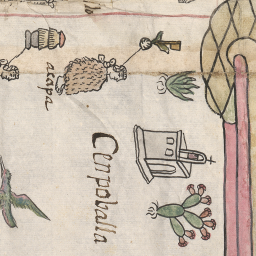 acapa
Cenpoballa